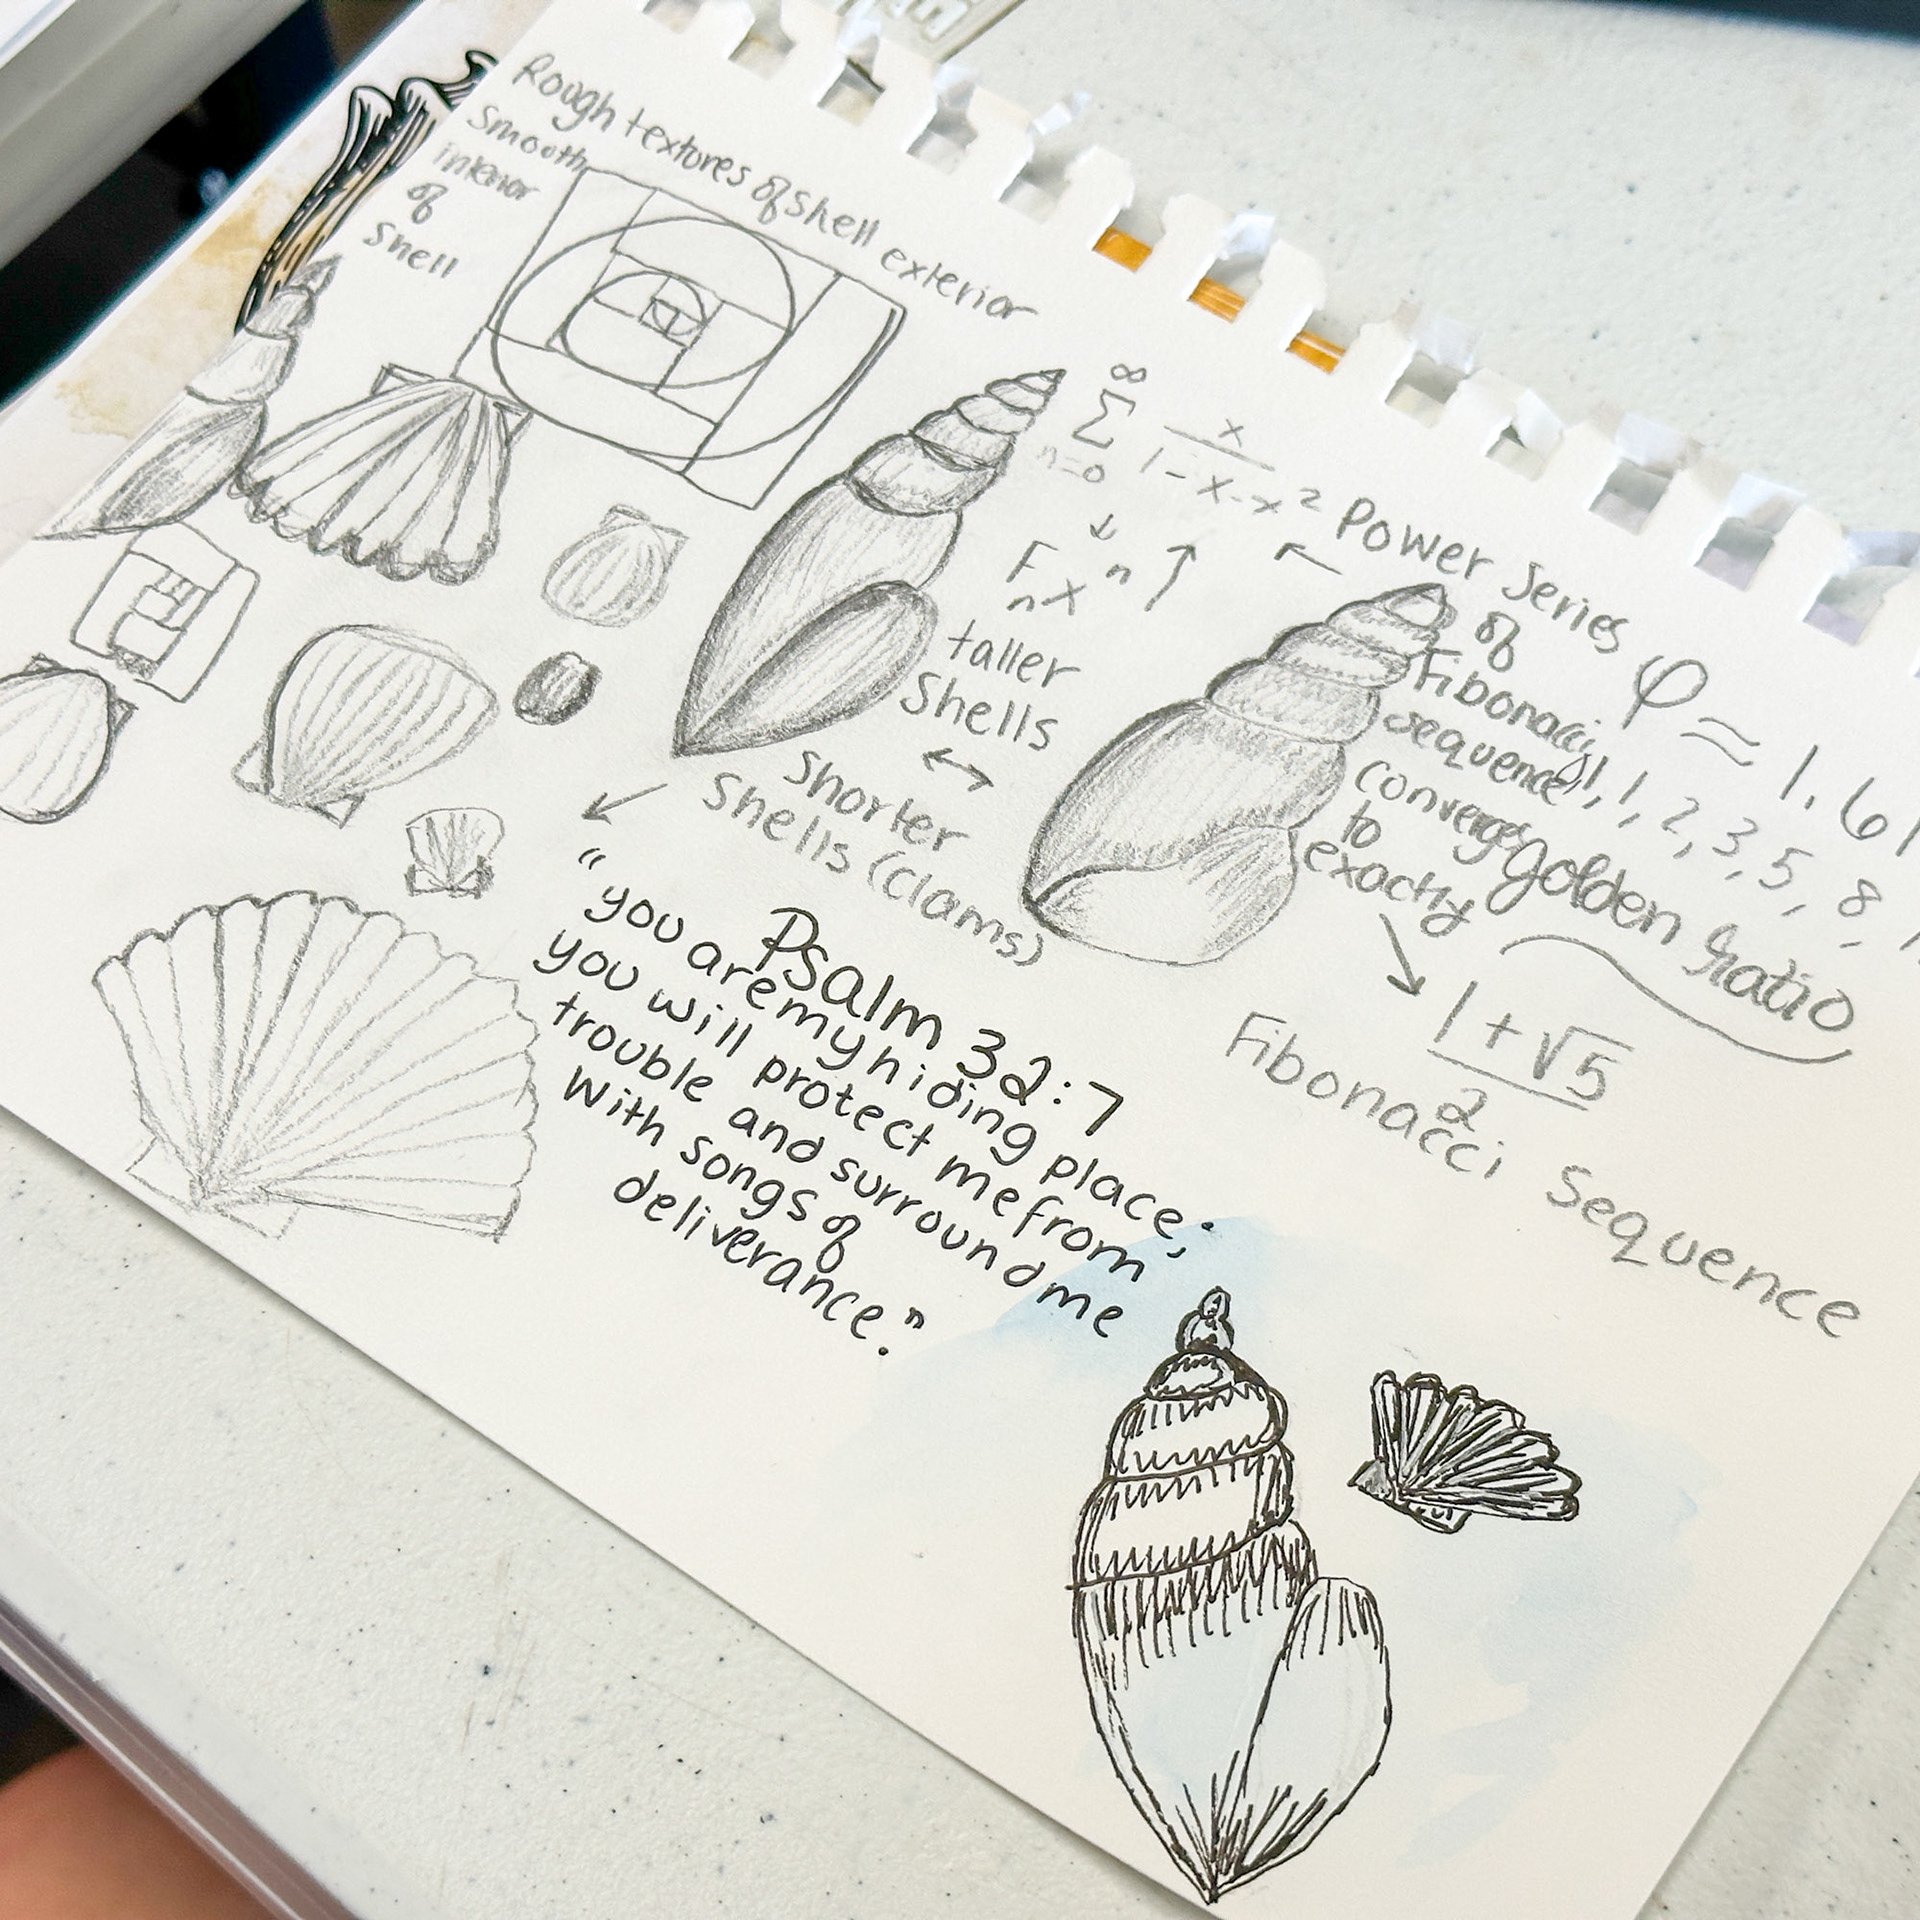 Rough textures of shell exterior
Smooth
interior
of
shell
∞
Σ
n=0
x
1-x-x²
↓
F n
n x
Power Series
of
Fibonacci
sequence
converges
to
exactly
φ ≈ 1.61
1, 1, 2, 3, 5, 8,
golden ratio
1+√5
2
Fibonacci Sequence
taller
Shells
↔
shorter
shells (clams)
Psalm 32:7
"you are my hiding place;
you will protect me from
trouble and surround me
with songs of
deliverance."